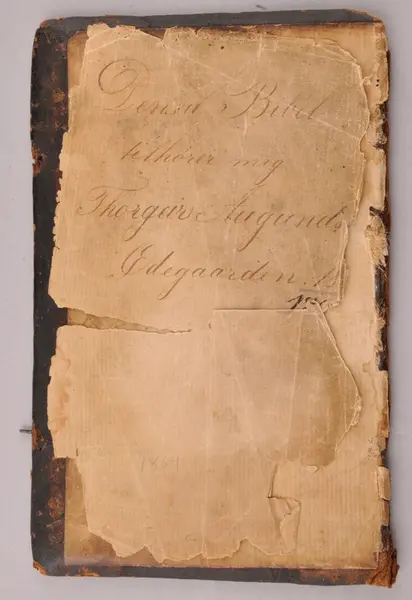 Denne Bibel
tilhører mig
Thorgur Augunds
Odegaarden
1864